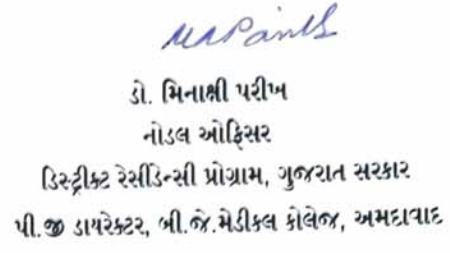 ડો. મિનાક્ષી પરીખ
નોડલ ઓફિસર
ડિસ્ટ્રીક્ટ રેસીડેન્સી પ્રોગ્રામ, ગુજરાત સરકાર
પી.જી ડાયરેક્ટર, બી.જે.મેડીકલ કોલેજ, અમદાવાદ